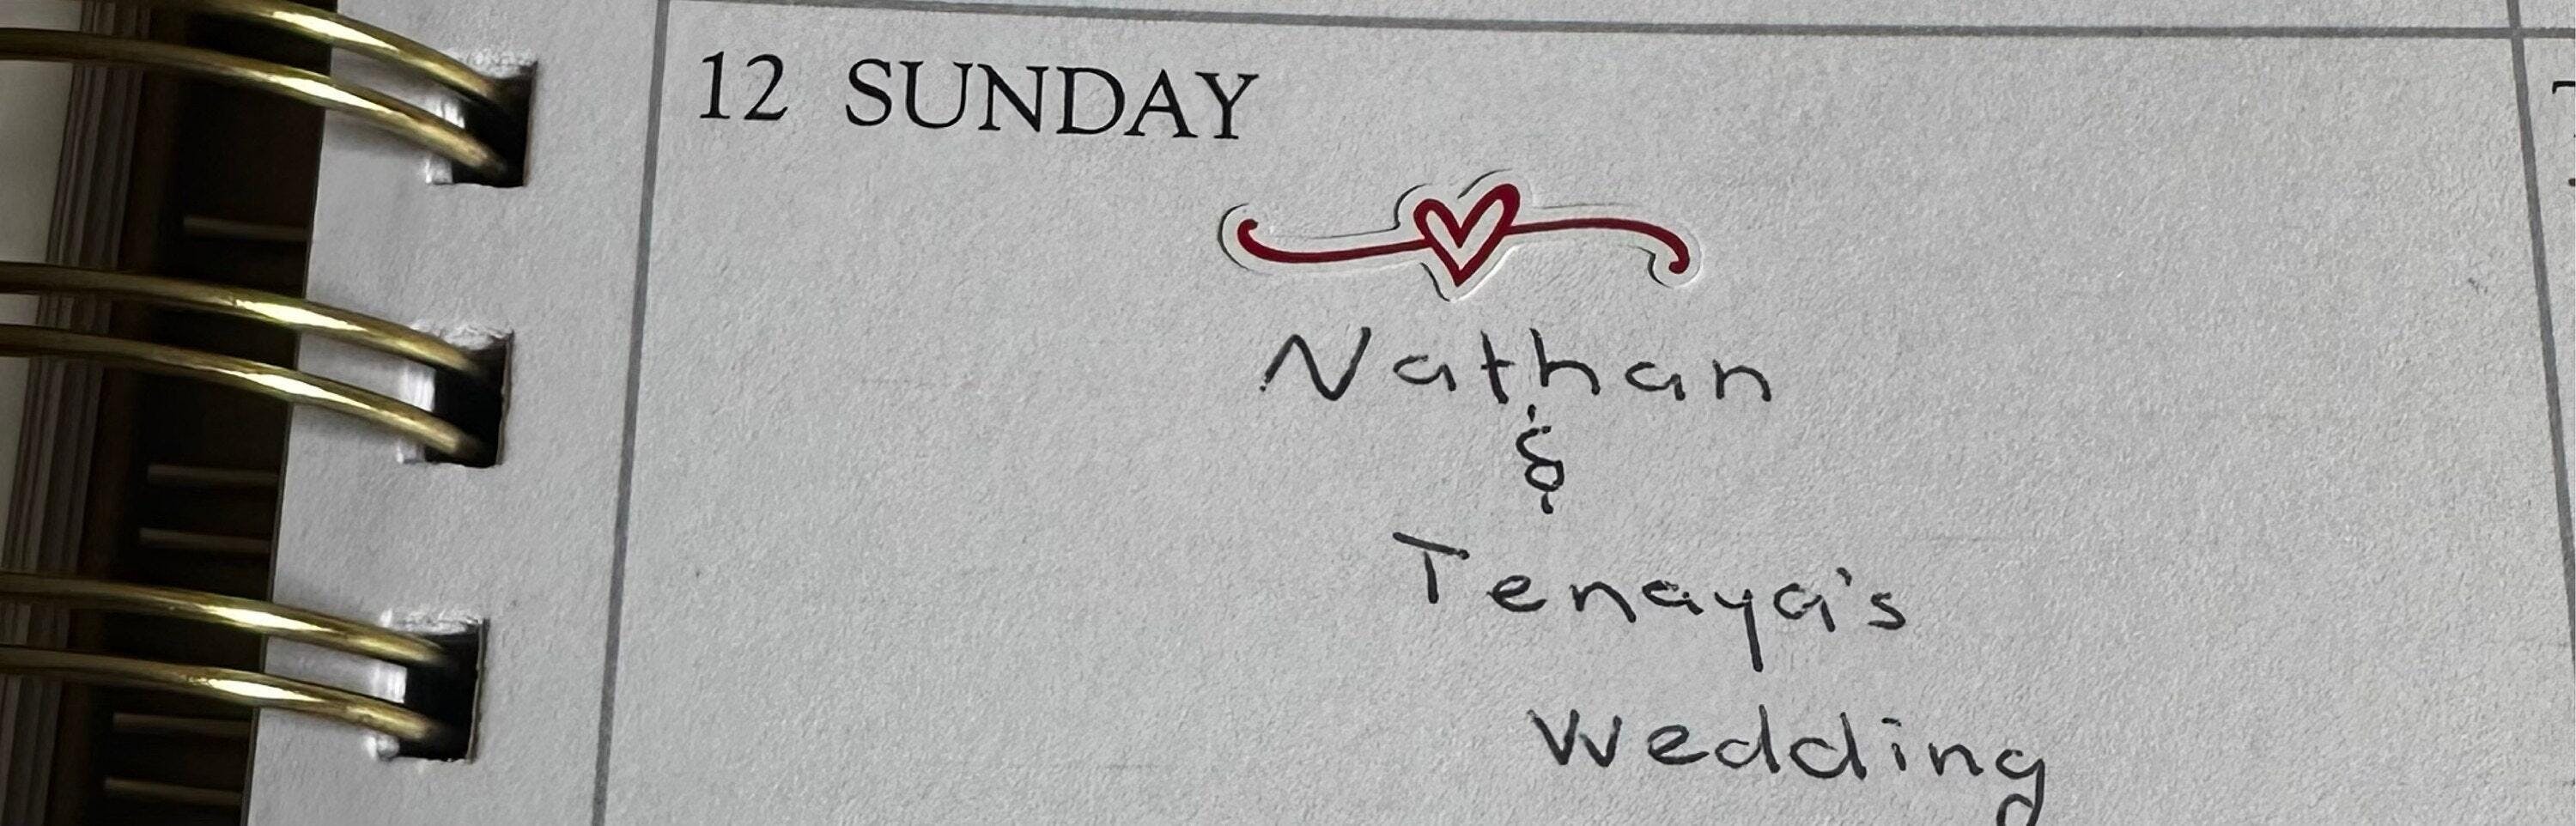 12 SUNDAY
Nathan
&
Tenaya's
Wedding